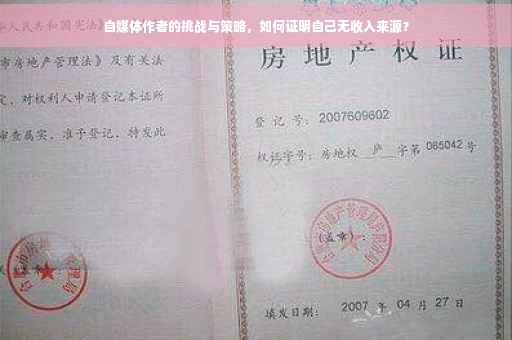 自媒体作者的挑战与策略，如何证明自己无收入来源？
华人民共和国宪法》
市房地产管理法》及有关
定，对权利人申请登记本证所
审查属实，准予登记，特发此
房地产权证
登记号：2007609602
权证字号：房地权 庐 字第 065042 号
(盖章)：
房地产管理局
填发日期：2007 年 04 月 27 日